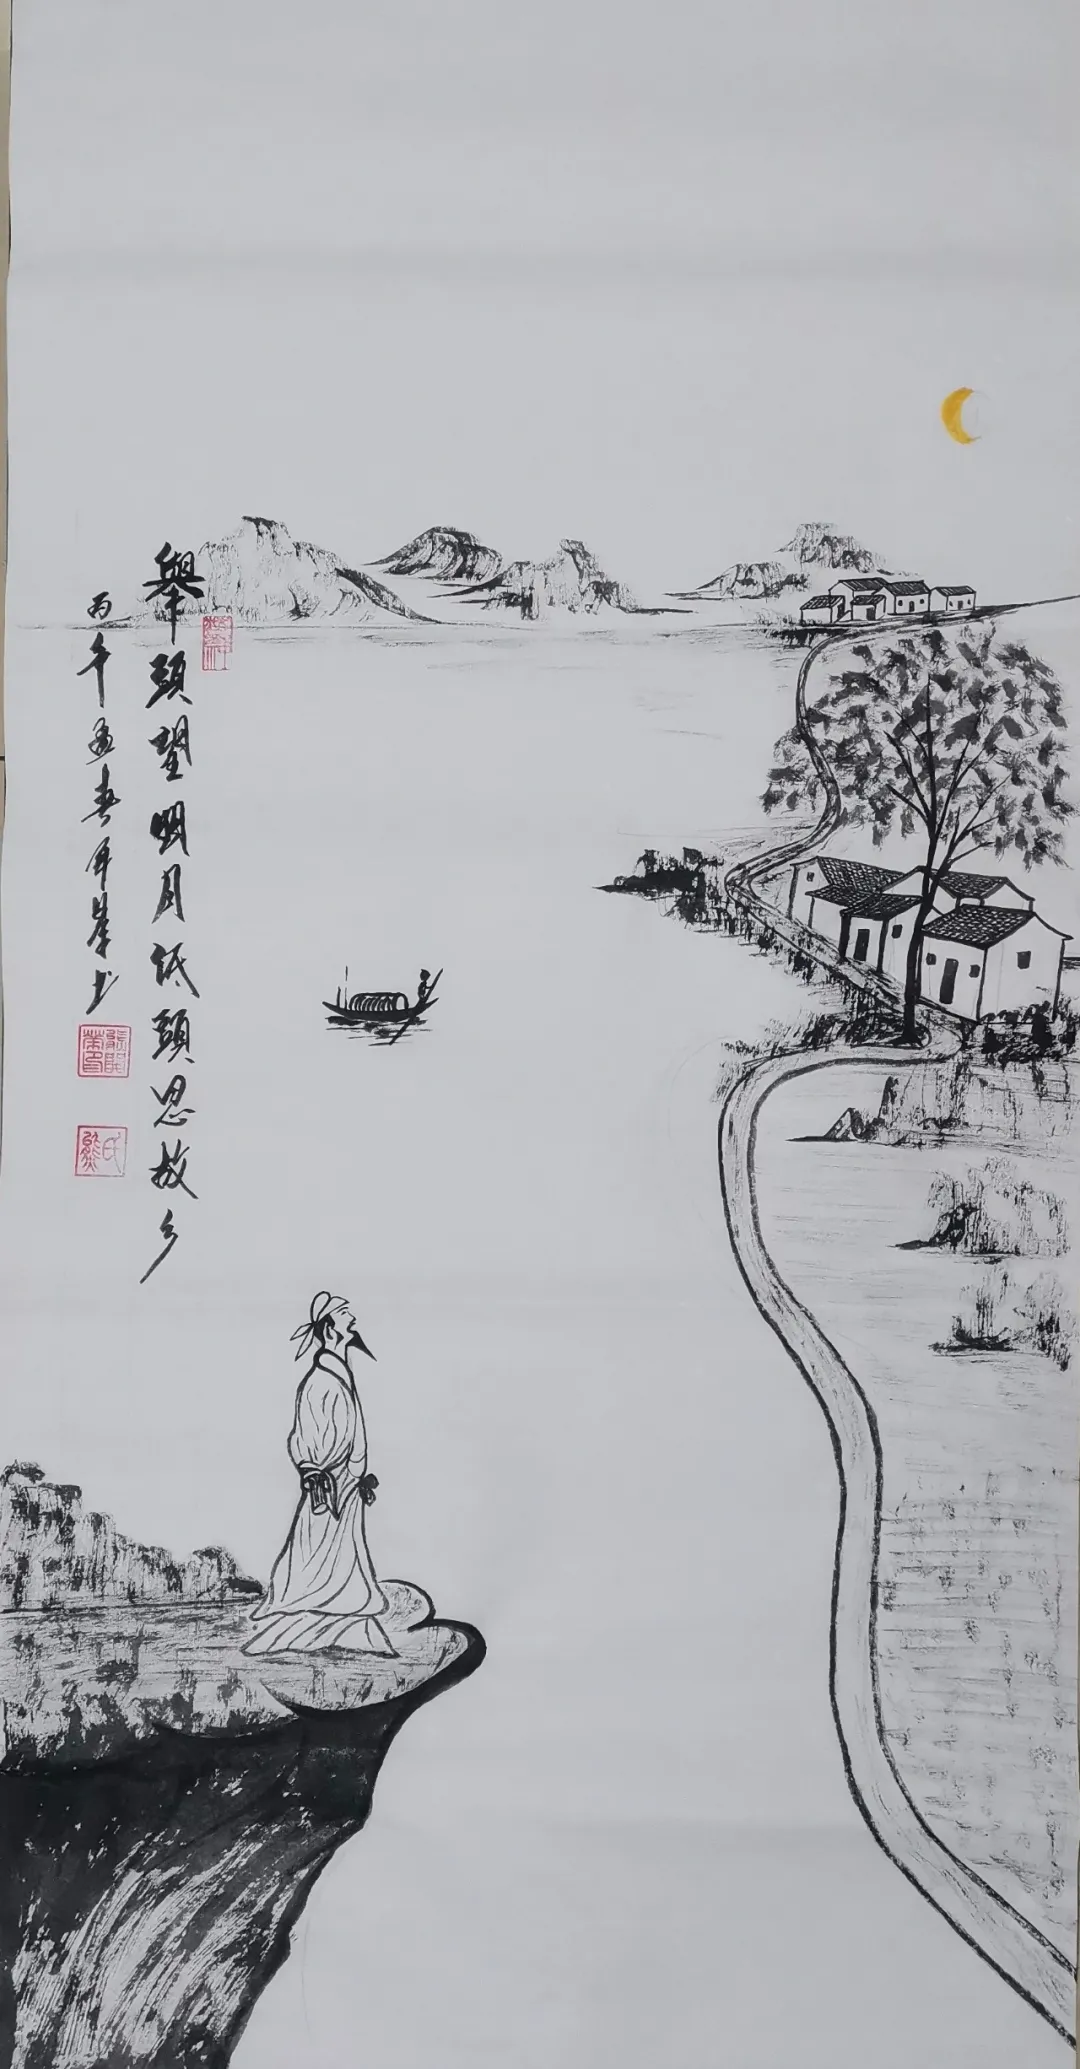 舉頭望明月低頭思故乡
丙午孟春年峯书
熊氏